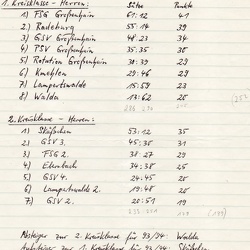 1. Kreisklasse - Herren: Sätze Punkte
1) FSG Großenhain 61:12 41
2) Radeburg 55:14 39
3) GSV Großenhain 48:23 34
4) PSV Großenhain 35:35 30
5) Rotation Großenhain 30:39
6) Kmehlen 29:46 29
7) Lampertswalde 15:59 23
8) Walda 13:62 20
2. Kreisklasse - Herren:
1) Skäßchen 53:12 35
2) GSV 3. 45:30 31
3) FSG 2. 38:27 29
4) 38:42 25
5) GSV 4. 24:45 20
6) Lampertswalde 2. 19:48 20
7) GSV 2. 20:51
Absteiger zur 2. Kreisklasse für 93/94: Walda
Aufsteiger zur 1. Kreisklasse für 93/94: Skäßchen